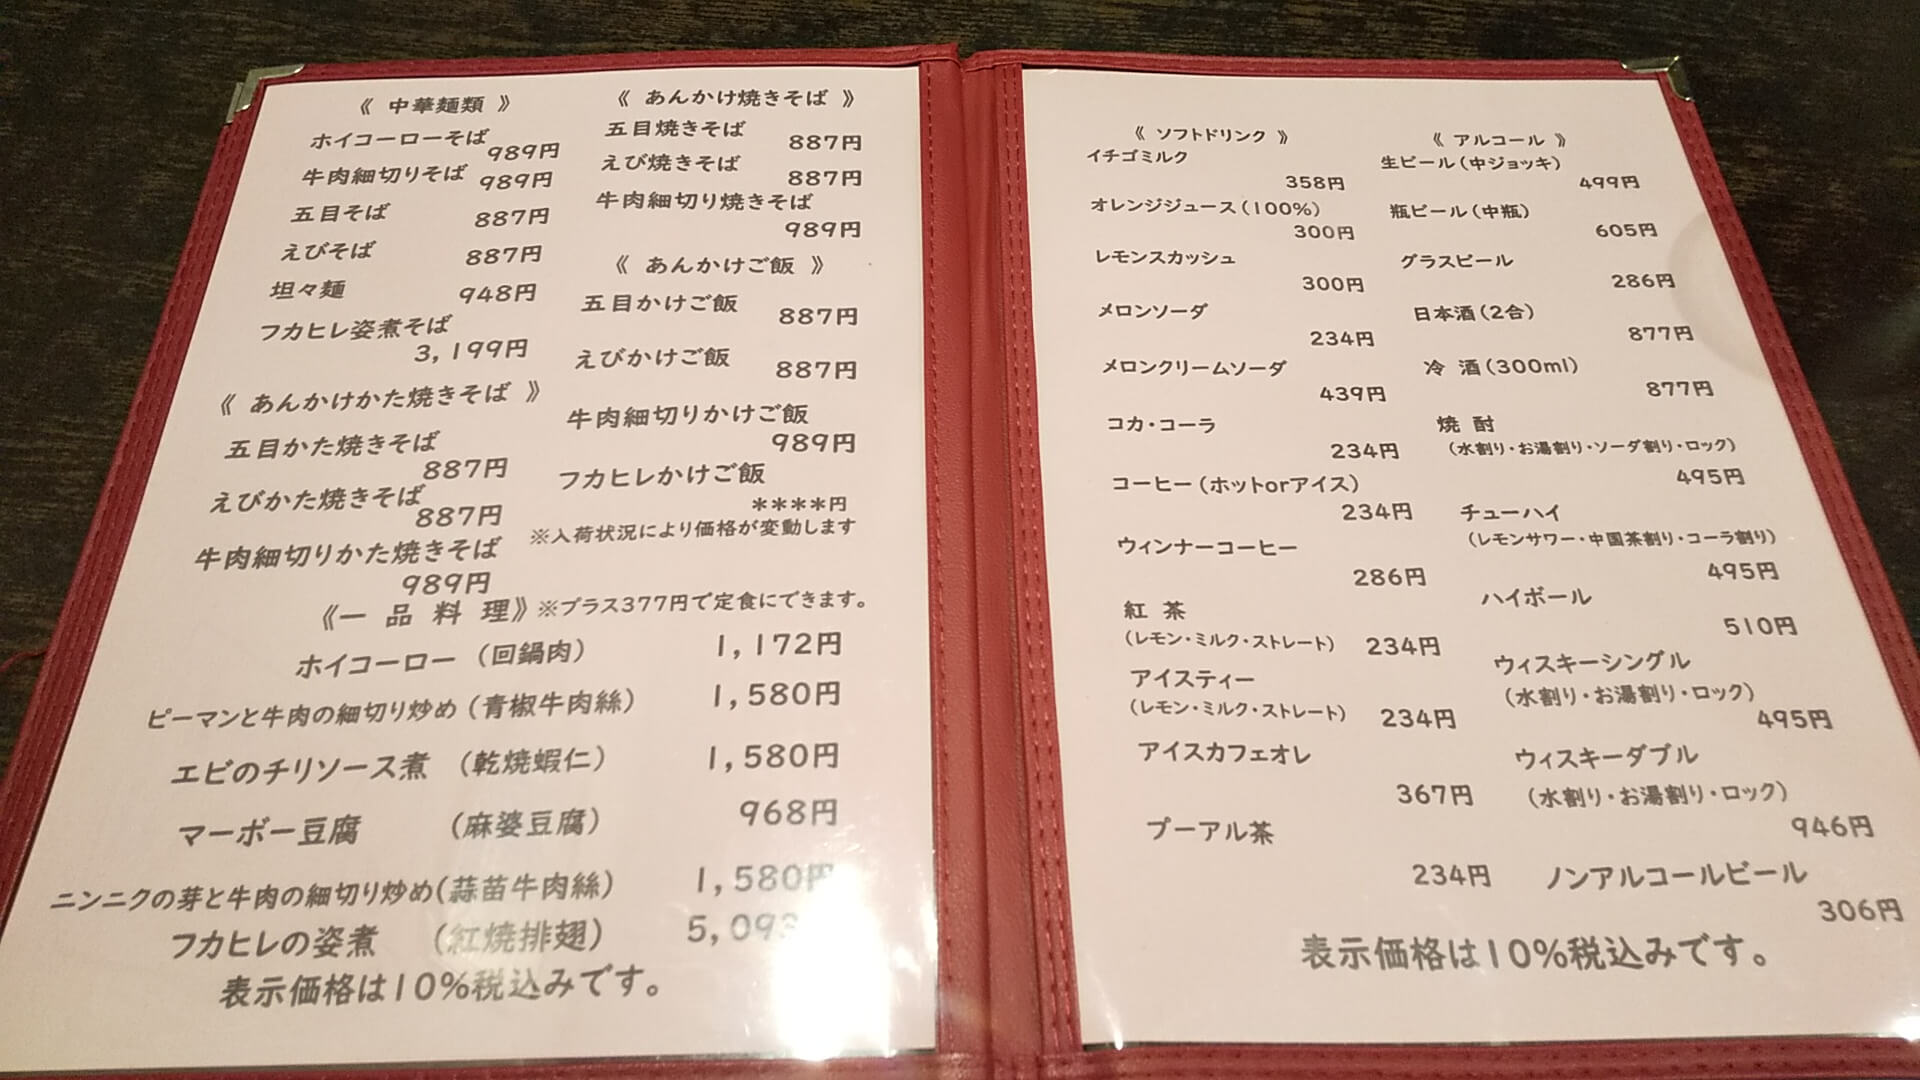 《 中華麺類 》
ホイコーローそば
989円
牛肉細切りそば 989円
五目そば 887円
えびそば 887円
坦々麺 948円
フカヒレ姿煮そば
3,199円
《 あんかけかた焼きそば 》
五目かた焼きそば
887円
えびかた焼きそば
887円
牛肉細切りかた焼きそば
989円
《 あんかけ焼きそば 》
五目焼きそば 887円
えび焼きそば 887円
牛肉細切り焼きそば
989円
《 あんかけご飯 》
五目かけご飯 887円
えびかけご飯 887円
牛肉細切りかけご飯
989円
フカヒレかけご飯
****円
※入荷状況により価格が変動します
《一 品 料 理》※プラス377円で定食にできます。
ホイコーロー (回鍋肉) 1,172円
ピーマンと牛肉の細切り炒め (青椒牛肉絲) 1,580円
エビのチリソース煮 (乾焼蝦仁) 1,580円
マーボー豆腐 (麻婆豆腐) 968円
ニンニクの芽と牛肉の細切り炒め(蒜苗牛肉絲) 1,580円
フカヒレの姿煮 (紅焼排翅) 5,093
表示価格は10%税込みです。
《 ソフトドリンク 》
イチゴミルク
358円
オレンジジュース(100%)
300円
レモンスカッシュ
300円
メロンソーダ
234円
メロンクリームソーダ
439円
コカ・コーラ
234円
コーヒー(ホットorアイス)
234円
ウィンナーコーヒー
286円
紅 茶
(レモン・ミルク・ストレート) 234円
アイスティー
(レモン・ミルク・ストレート) 234円
アイスカフェオレ
367円
プーアル茶
234円
《 アルコール 》
生ビール(中ジョッキ)
499円
瓶ビール(中瓶)
605円
グラスビール
286円
日本酒(2合)
877円
冷 酒(300ml)
877円
焼 酎
(水割り・お湯割り・ソーダ割り・ロック)
495円
チューハイ
(レモンサワー・中国茶割り・コーラ割り)
495円
ハイボール
510円
ウィスキーシングル
(水割り・お湯割り・ロック)
495円
ウィスキーダブル
(水割り・お湯割り・ロック)
946円
ノンアルコールビール
306円
表示価格は10%税込みです。